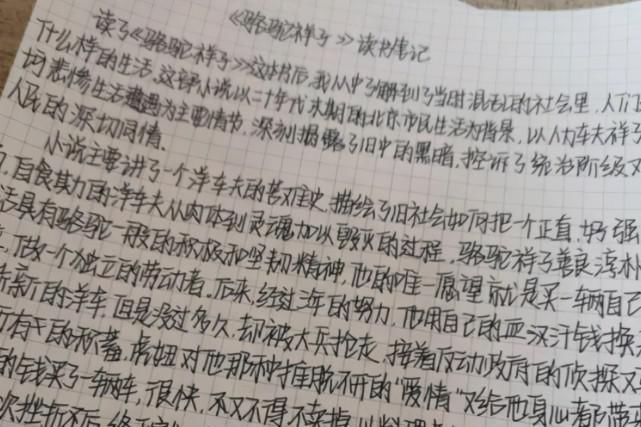 《骆驼祥子》读书笔记
读了《骆驼祥子》这本书后,我从中了解到了当时混乱的社会里,人们
什么样的生活,这部小说以二十年代末期的北京市民生活为背景,以人力车夫祥子
坷悲惨生活遭遇为主要情节,深刻揭露了旧中的黑暗,控诉了统治阶级又
人民的深切同情.
小说主要讲了一个洋车夫的苦难史,描绘了旧社会如何把一个正直,好强
自食其力的洋车夫从肉体到灵魂加以毁灭的过程,骆驼祥子善良淳朴
活具有骆驼一般的积极和坚韧精神,他的唯一愿望就是买一辆自己
做一个独立的劳动者.后来,经过年的努力,他用自己的血汉汗钱换
新的洋车,但是没过多久,却被大兵抢走,接着反动政府的侦探又
所有的积蓄,虎妞对他那种推脱不开的"爱情"又给他身心者都带
的钱买了一辆车,很快,不又不得不卖掉以料理
次挫折后